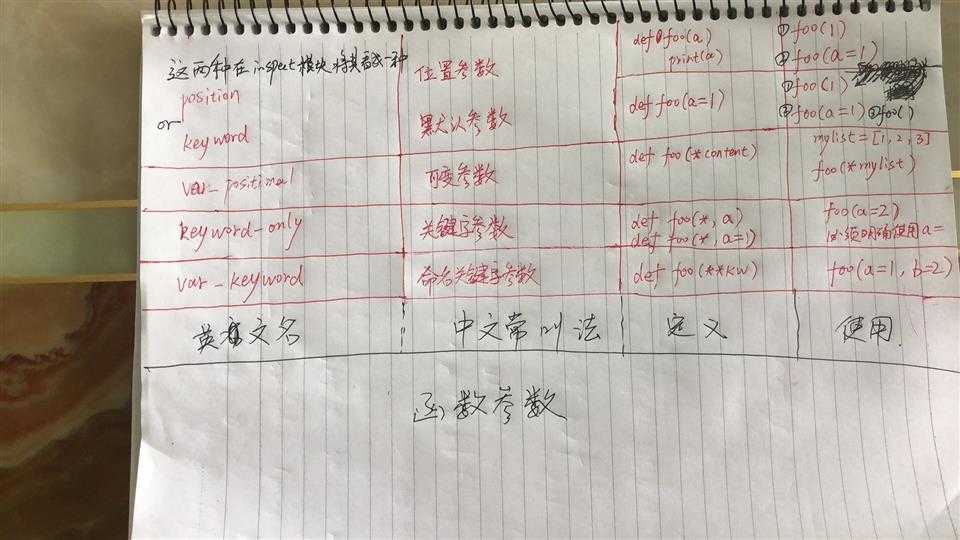 这两种在inspect模块将其看成一种
position
or
keyword
位置参数
默认参数
def foo(a)
print(a)
def foo(a=1)
①foo(1)
②foo(a=1)
①foo(1)
②foo(a=1) ③foo()
var_positional
可变参数
def foo(*content)
mylist = [1, 2, 3]
foo(*mylist)
keyword-only
关键字参数
def foo(*, a)
def foo(*, a=1)
foo(a=2)
必须明确使用a=
var_keyword
命名关键字参数
def foo(**kw)
foo(a=1, b=2)
英文名
中文常叫法
定义
使用.
函数参数